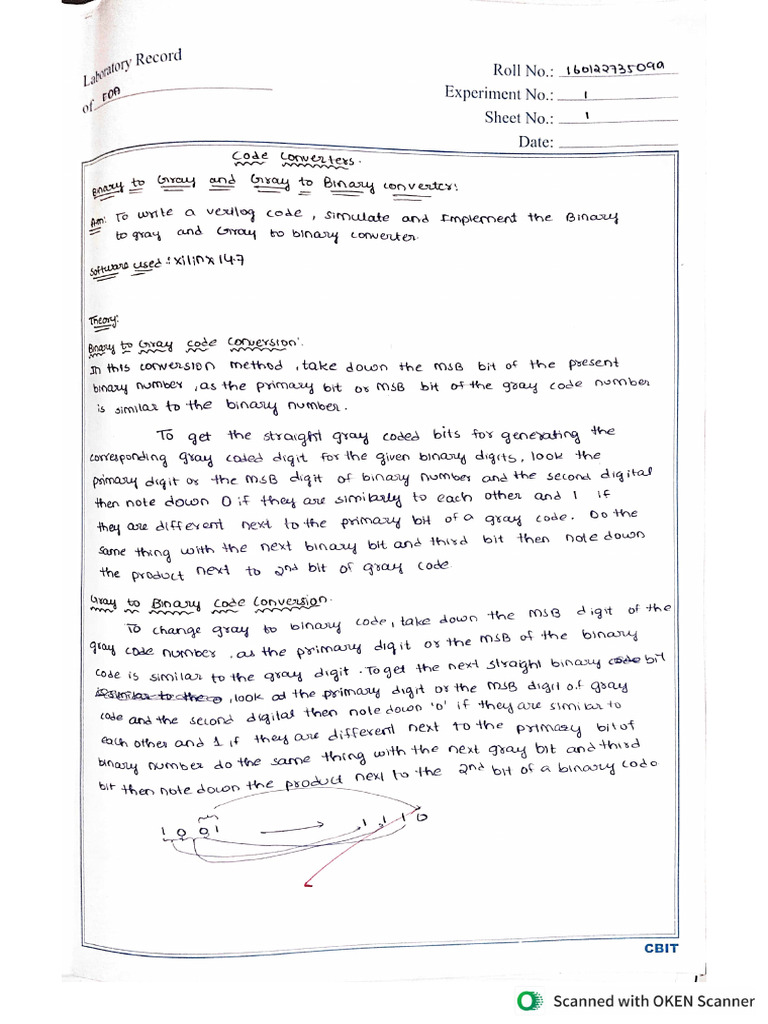 Laboratory Record
of FOA
Roll No.: 160122735099
Experiment No.: 1
Sheet No.: 1
Date:
Code Converters.
Binary to Gray and Gray to Binary converter:
Aim: To write a verilog code, simulate and Implement the Binary
to gray and Gray to binary converter.
Software used: Xilinx 14.7
Theory:
Binary to Gray code conversion:
In this conversion method, take down the MSB bit of the present
binary number, as the primary bit or MSB bit of the gray code number
is similar to the binary number.
To get the straight gray coded bits for generating the
corresponding gray coded digit for the given binary digits, look the
primary digit or the MSB digit of binary number and the second digital
then note down 0 if they are similarly to each other and 1 if
they are different next to the primary bit of a gray code. Do the
same thing with the next binary bit and third bit then note down
the product next to 2nd bit of gray code.
Gray to Binary Code Conversion.
To change gray to binary code, take down the MSB digit of the
gray code number, as the primary digit or the MSB of the binary
code is similar to the gray digit. To get the next straight binary code bit
is similar to the, look at the primary digit or the MSB digit of gray
code and the second digital then note down '0' if they are similar to
each other and 1 if they are different next to the primary bit of
binary number do the same thing with the next gray bit and third
bit then note down the product next to the 2nd bit of a binary code.
1 0 0 1 → 1 1 1 0
CBIT
Scanned with OKEN Scanner